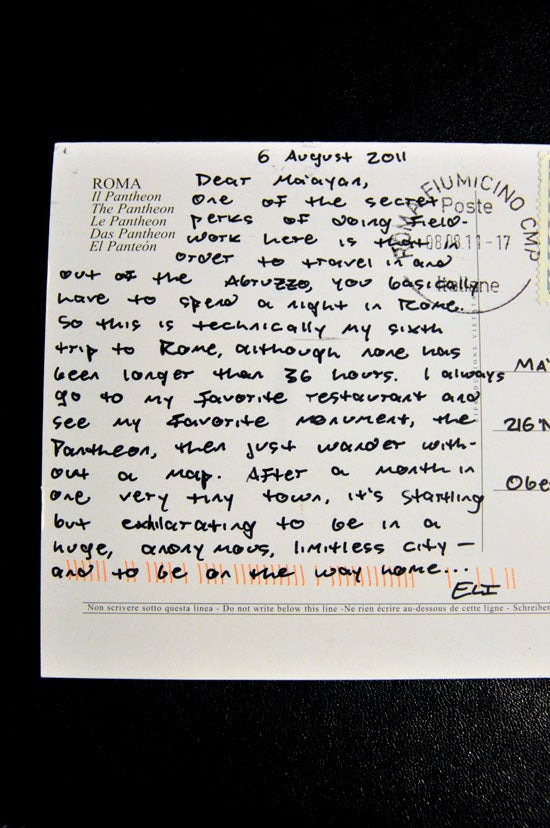 6 August 2011
ROMA
Il Pantheon
The Pantheon
Le Pantheon
Das Pantheon
El Panteón
Dear Ma'ayan,
one of the secret
perks of doing field-
work here is that in
order to travel in and
out of the Abruzzo, you basically
have to spend a night in Rome.
So this is technically my sixth
trip to Rome, although none has
been longer than 36 hours. I always
go to my favorite restaurant and
see my favorite monument, the
Pantheon, then just wander with-
out a map. After a month in
one very tiny town, it's startling
but exhilarating to be in a
huge, anonymous, limitless city —
and to be on the way home...
ELI
ROMA FIUMICINO CMP
Poste
08.08.11-17
Italiane
MA
216 N
Obe
Non scrivere sotto questa linea - Do not write below this line -Ne rien écrire au-dessous de cette ligne - Schreiber